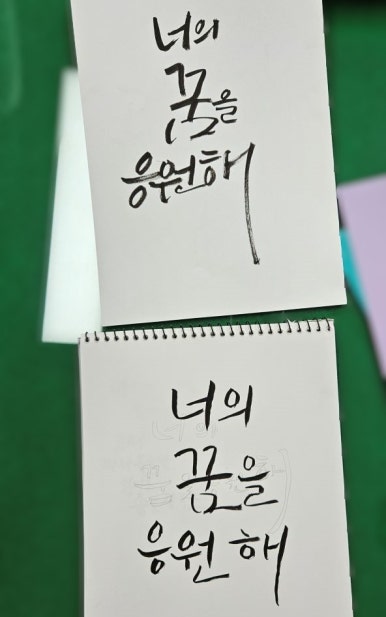 너의
꿈을
응원해
너의
꿈을
응원 해